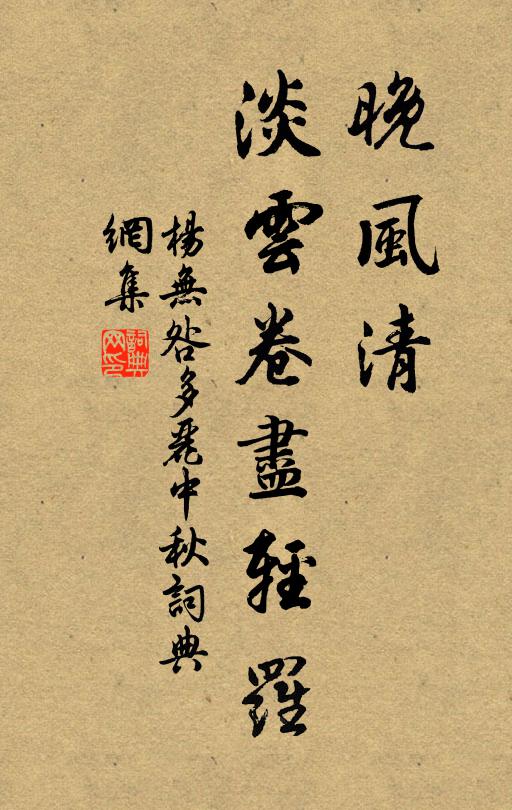 晚風清
淡雲卷盡輕羅
楊無咎多麗中秋詞典
網集
詞典
网印